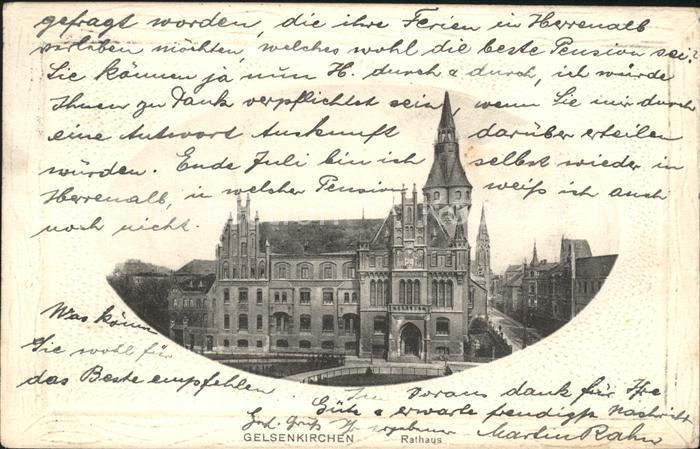 gefragt worden, die ihre Ferien in Herrenalb
verleben möchten, welches wohl die beste Pension sei?
Sie können ja nun H. durch & durch, ich würde
Ihnen zu Dank verpflichtet sein wenn Sie mir durch
eine Antwort Auskunft darüber erteilen
würden. Ende Juli bin ich selbst wieder in
Herrenalb, in welcher Pension weiß ich auch
noch nicht.
Was können
Sie wohl für
das Beste empfehlen.
Im Voraus dank für Ihre
Güte & erwarte freudigst Nachricht
Gruß Ihr ergebener Martin Rahn
GELSENKIRCHEN Rathaus